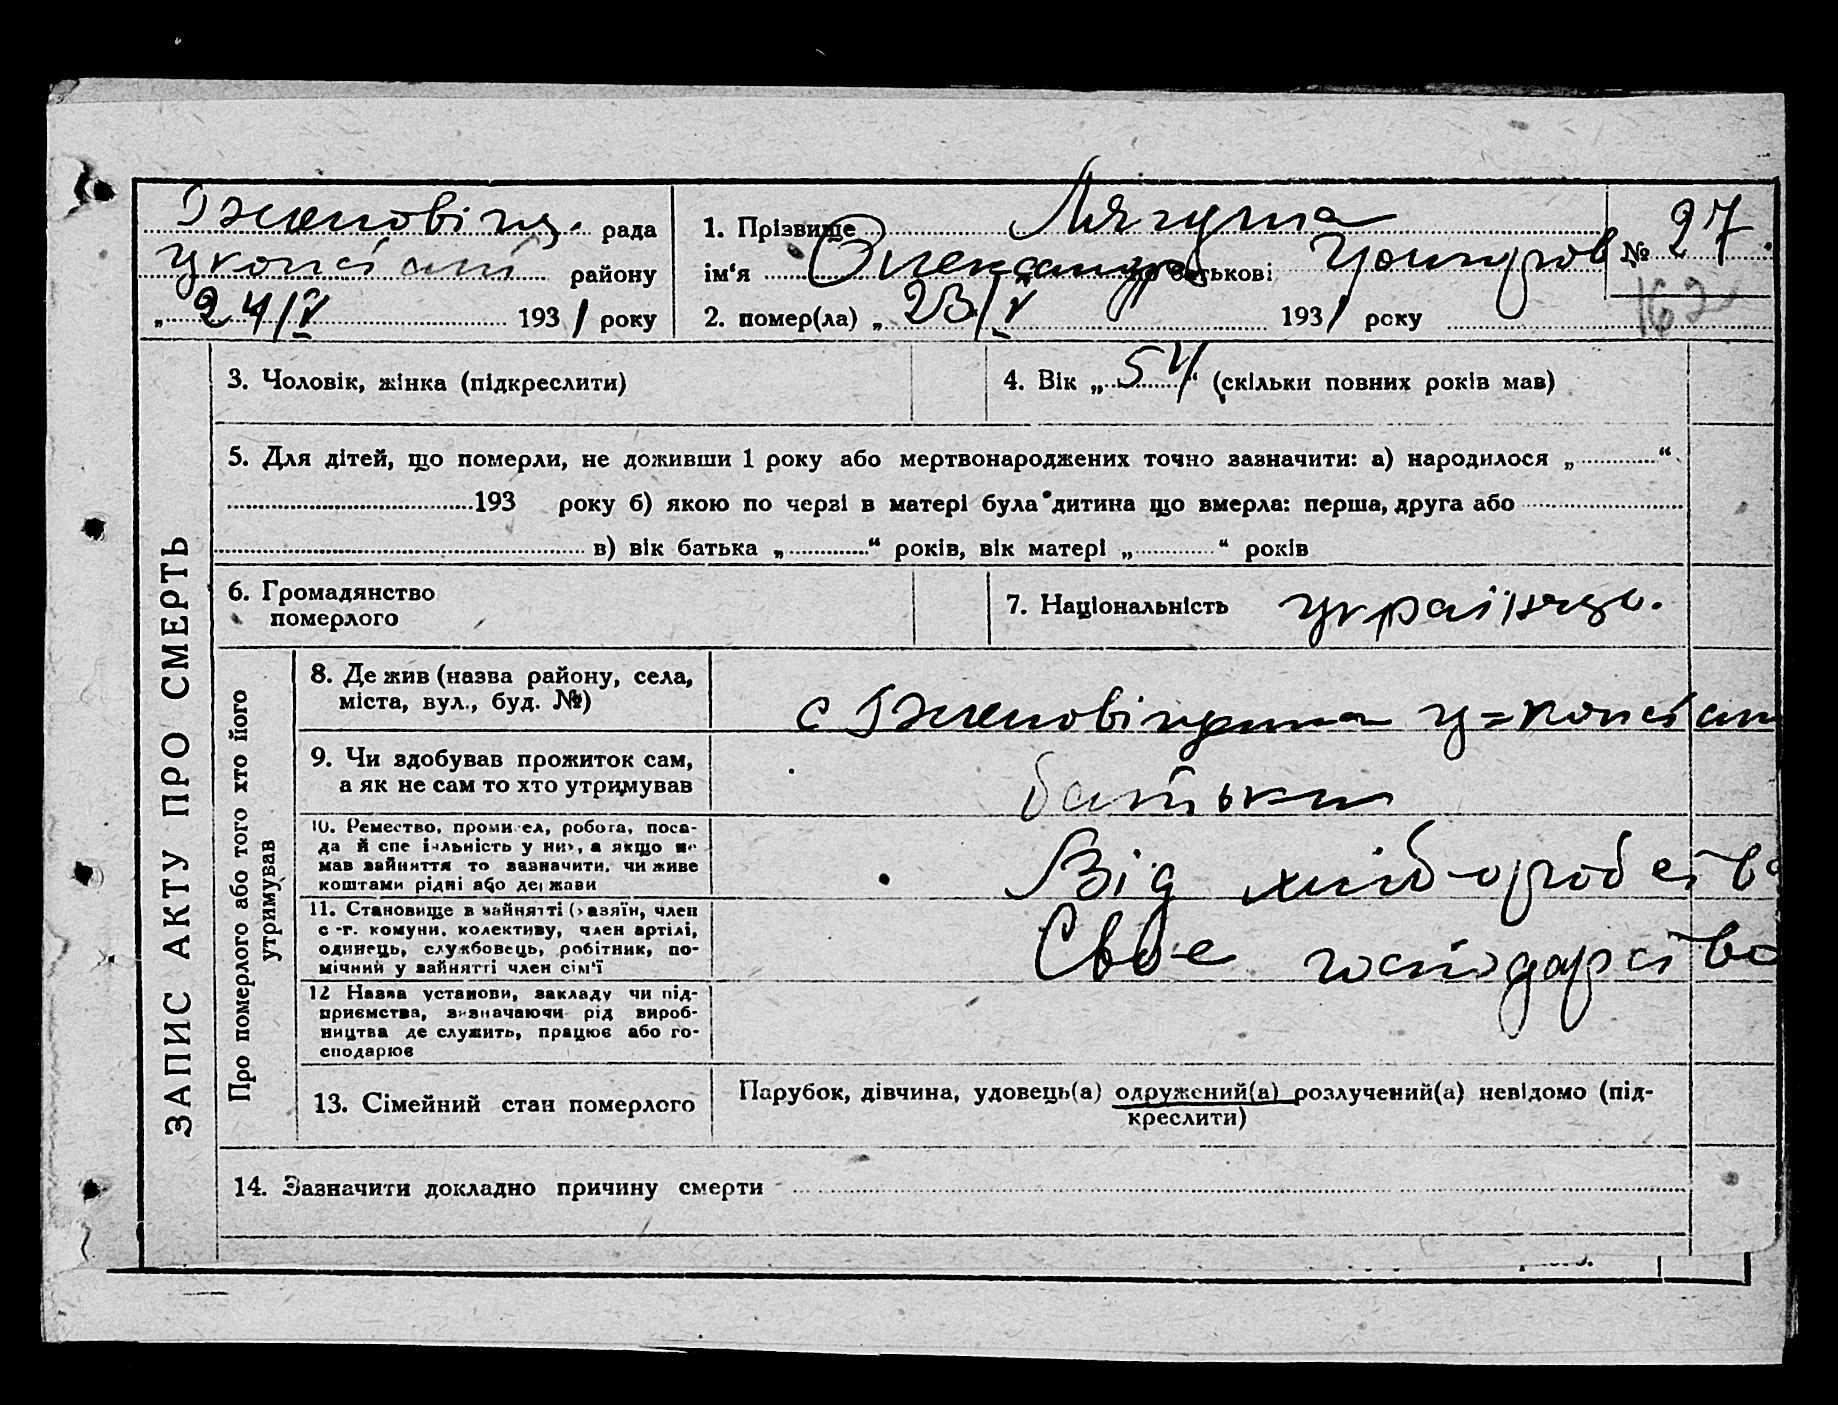 рада
району
„ 24/V 1931 року
1. Прізвище
№ 27.
ім‘я Олександр по батькові
162
2. помер(ла) „ 23/V 1931 року
ЗАПИС АКТУ ПРО СМЕРТЬ
3. Чоловік, жінка (підкреслити)
4. Вік „ 54 “ (скільки повних років мав)
5. Для дітей, що померли, не доживши 1 року або мертвонароджених точно зазначити: а) народилося „ “
193 року б) якою по черзі в матері була дитина що вмерла: перша, друга або
в) вік батька „ “ років, вік матері „ “ років
6. Громадянство
померлого
7. Національність
Про померлого або того хто його
утримував
8. Де жив (назва району, села,
міста, вул., буд. №)
с
9. Чи здобував прожиток сам,
а як не сам то хто утримував
батьки
10. Ремество, промисел, робота, поса-
да й спеціяльність у ній, а якщо не
мав зайняття то зазначити, чи живе
коштами рідні або держави
Від хліборобства
11. Становище в зайнятті (хазяїн, член
с.-г. комуни, колективу, член артілі,
одинець, службовець, робітник, по-
мічний у зайнятті член сім‘ї
Своє господарство
12 Назва установи, закладу чи під-
приємства, визначаючи рід вироб-
ництва де служить, працює або го-
сподарює
13. Сімейний стан померлого
Парубок, дівчина, удовець(а) одружений(а) розлучений(а) невідомо (під-
креслити)
14. Зазначити докладно причину смерти